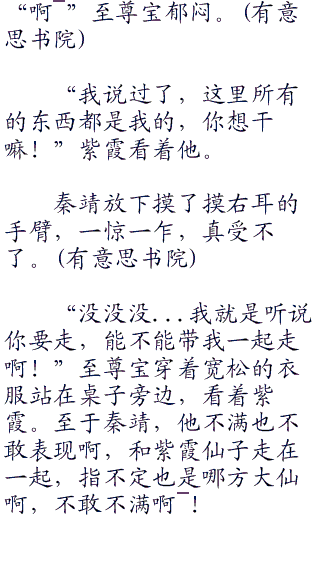 “啊¯”至尊宝郁闷。(有意
思书院)
“我说过了，这里所有
的东西都是我的，你想干
嘛！”紫霞看着他。
秦靖放下摸了摸右耳的
手臂，一惊一乍，真受不
了。(有意思书院)
“没没没...我就是听说
你要走，能不能带我一起走
啊！”至尊宝穿着宽松的衣
服站在桌子旁边，看着紫
霞。至于秦靖，他不满也不
敢表现啊，和紫霞仙子走在
一起，指不定也是哪方大仙
啊，不敢不满啊¯！